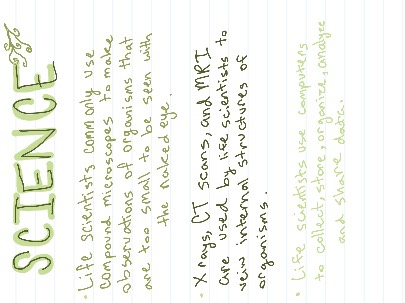 SCIENCE
• Life scientists commonly use
compound microscopes to make
observations of organisms that
are too small to be seen with
the naked eye.
• X rays, CT scans, and MRI
are used by life scientists to
veiw internal structures of
organisms.
• Life scientists use computers
to collect, store, organize, analyze
and share data.